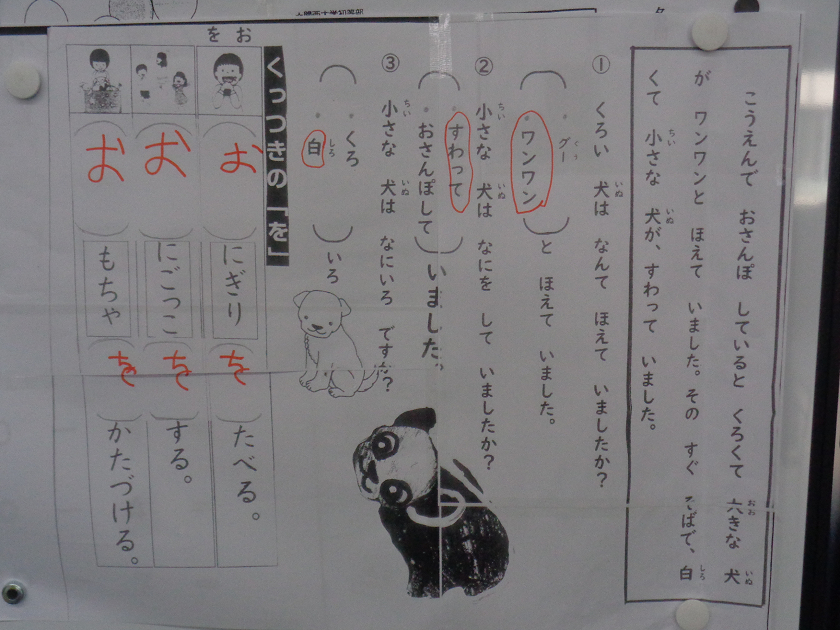 こうえんで おさんぽ していると くろくて 大きな 犬
が ワンワンと ほえて いました。その すぐ そばで、白
くて 小さな 犬が、すわって いました。
① くろい 犬は なんて ほえて いましたか?
(・グー ・ワンワン)と ほえて いました。
② 小さな 犬は なにを して いましたか?
(・すわって ・おさんぽして)いました。
③ 小さな 犬は なにいろ ですか?
(・くろ ・白)いろ
くっつきの「を」
お
を
(お)にぎり(を)たべる。
(お)にごっこ(を)する。
(お)もちゃ(を)かたづける。